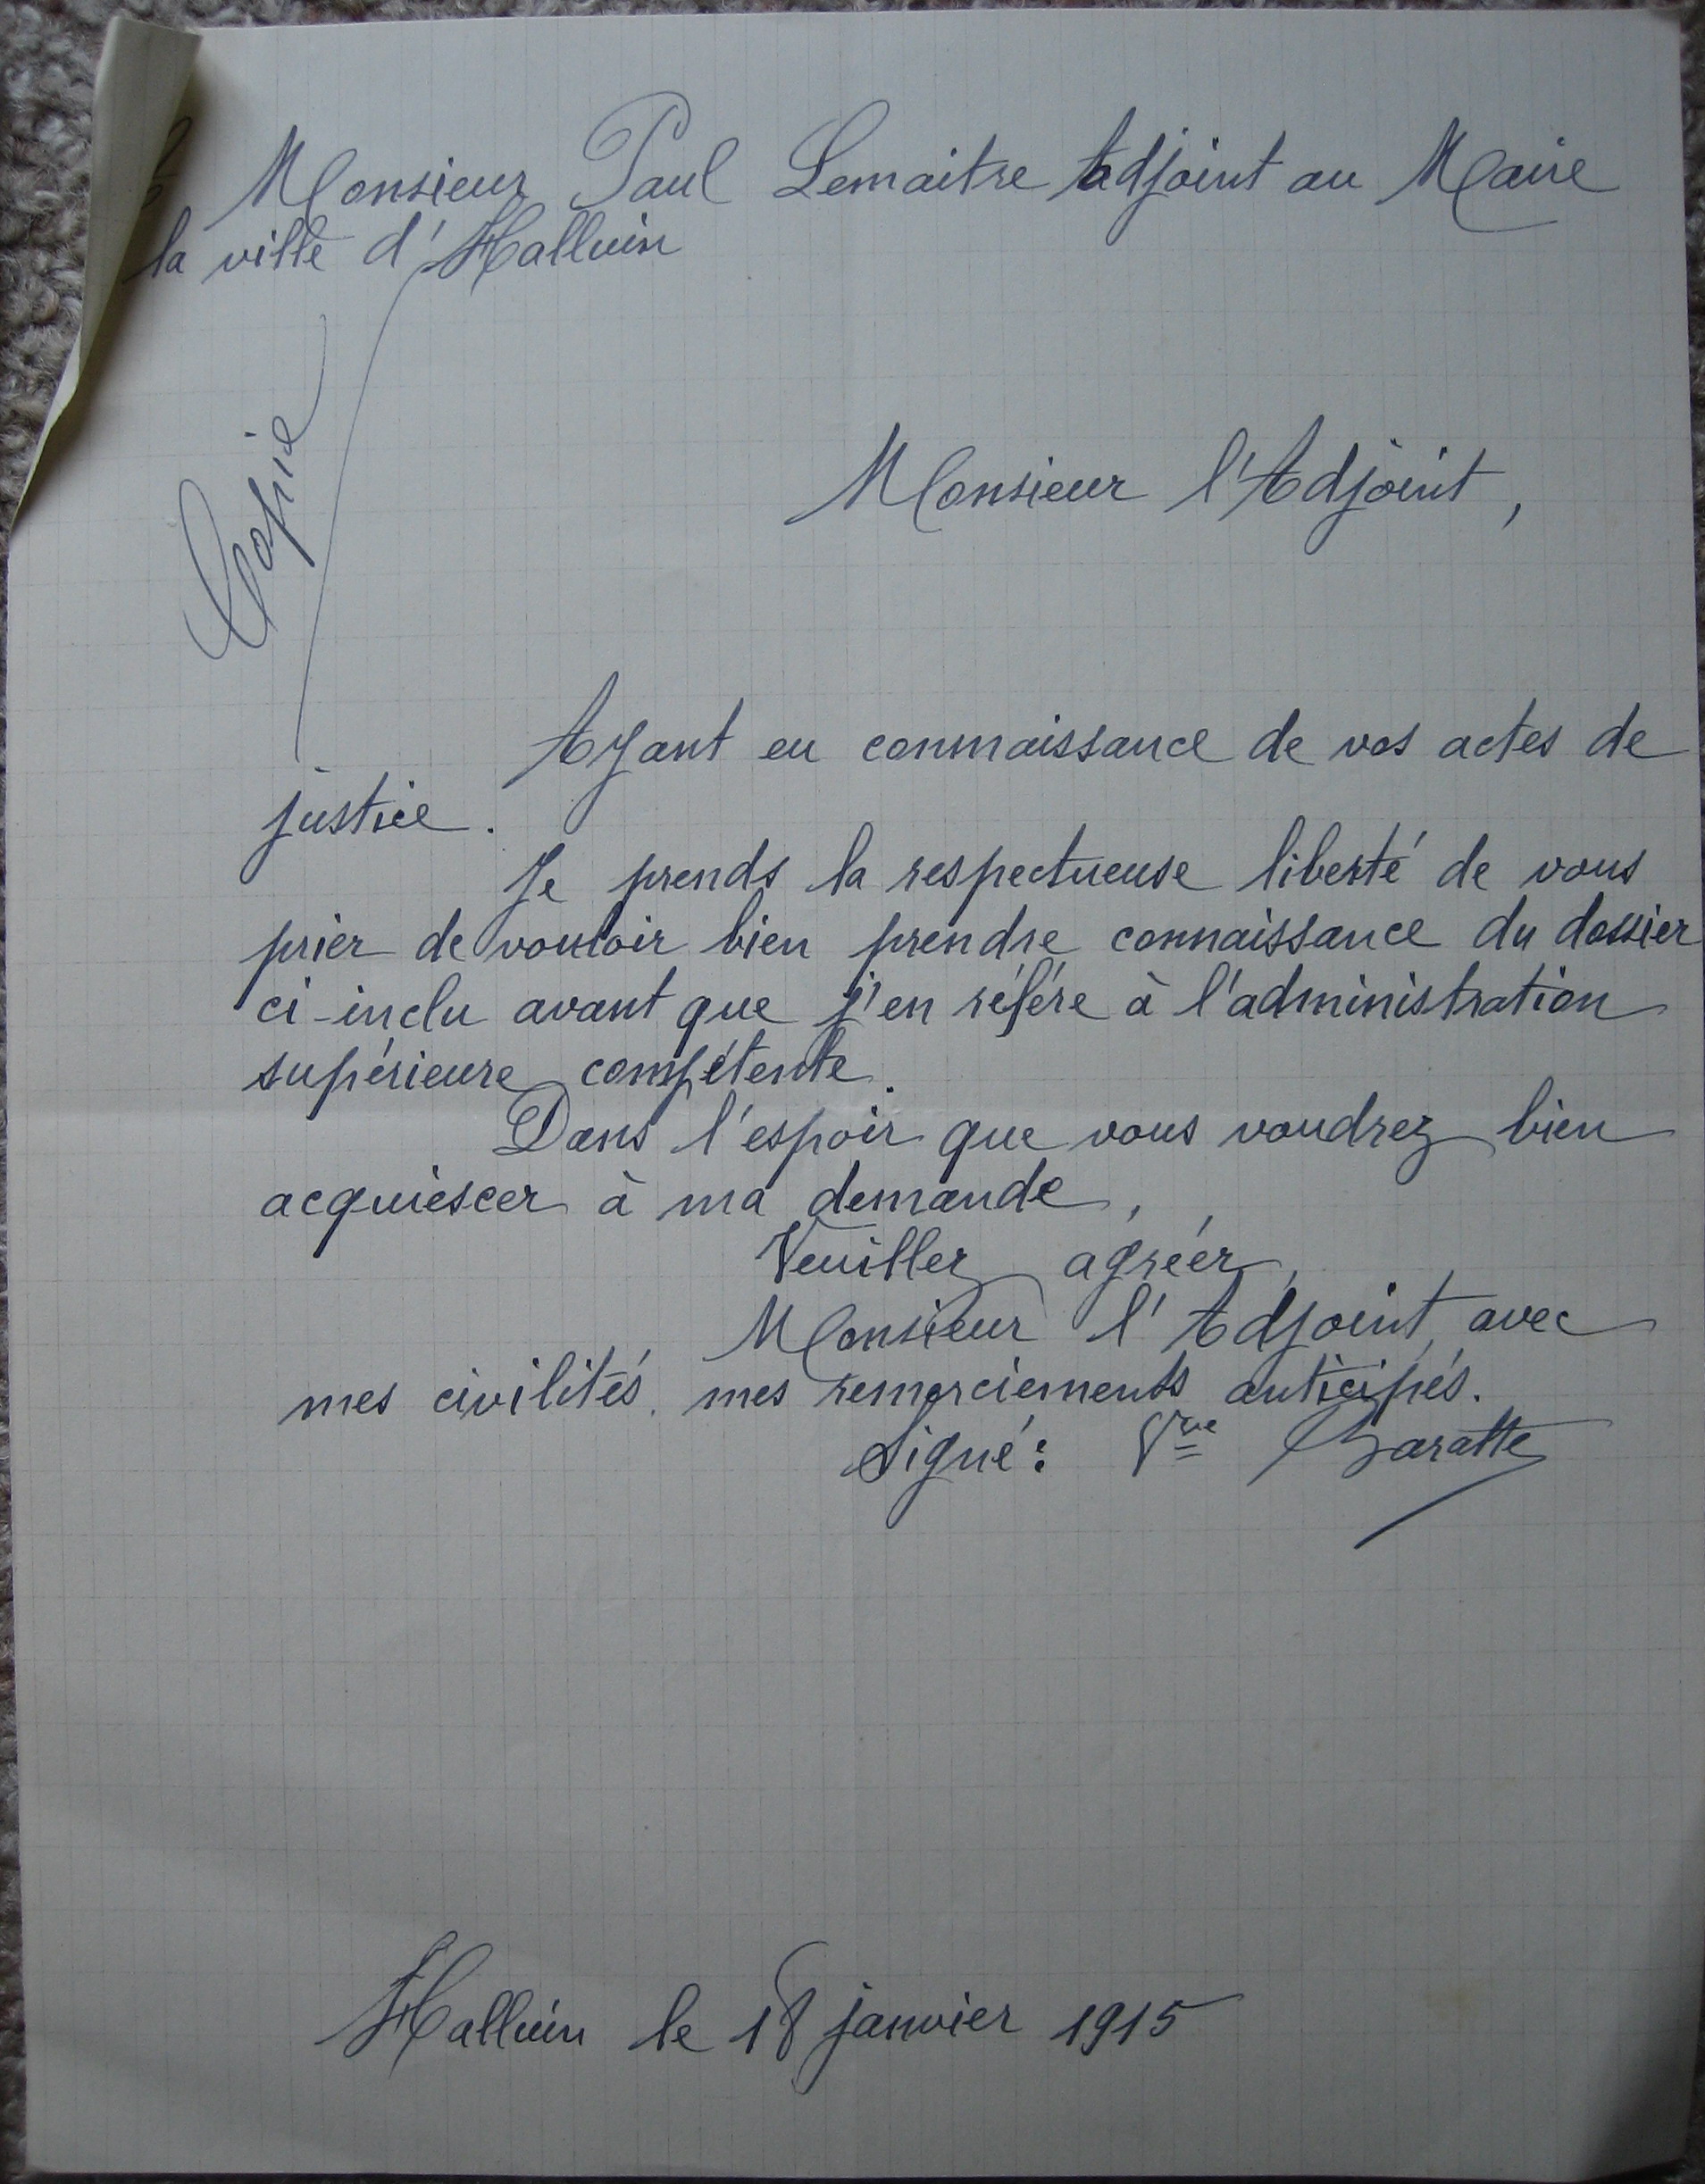 Monsieur Paul Lemaitre Adjoint au Maire
la ville d'Halluin
Copie
Monsieur l'Adjoint,
Ayant eu connaissance de vos actes de
justice.
Je prends la respectueuse liberté de vous
prier de vouloir bien prendre connaissance du dossier
ci-inclu avant que j'en réfère à l'administration
supérieure compétente.
Dans l'espoir que vous voudrez bien
acquiescer à ma demande,
Veuillez agréer,
Monsieur l'Adjoint, avec
mes civilités, mes remerciements anticipés.
Signé : Vve Baratte
Halluin le 18 janvier 1915